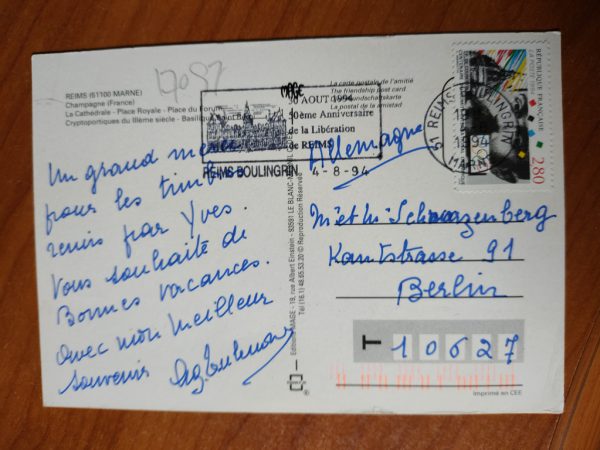 REIMS (51100 MARNE)
Champagne (France)
La Cathédrale - Place Royale - Place du Forum
Cryptoportiques du IIIème siècle - Basilique Saint Remi
La carte postale de l'amitié
The friendship post card
La postal de la amistad
30 AOUT 1994
50ème Anniversaire
de la Libération
de REIMS
REIMS BOULINGRIN 4-8-94
51 REIMS BOULINGRIN
MARNE
RÉPUBLIQUE FRANÇAISE
2,80
Un grand merci
pour les timbres
remis par Yves.
Vous souhaite de
Bonnes vacances.
Avec mon meilleur
souvenir
Allemagne
M et Mr Schwarzenberg
Kantstrasse 91
Berlin
T 10627
Imprimé en CEE
19, rue Albert Einstein - 93591 LE BLANC-MESNIL
Tél (16.1) 48.65.53.20 © Reproduction Réservée